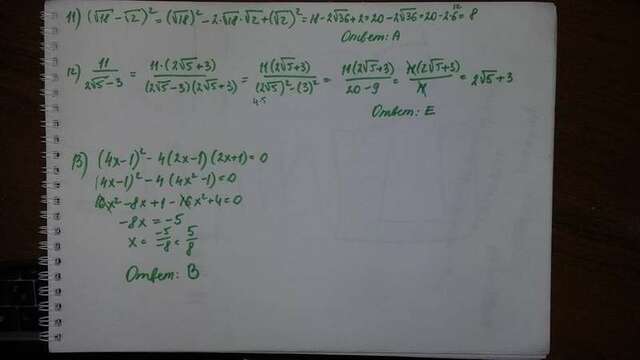 11) (√18 - √2)² = (√18)² - 2·√18·√2 + (√2)² = 18 - 2√36 + 2 = 20 - 2√36 = 20 - 2·6 = 8
Ответ: A
12) 11/(2√5 - 3) = 11·(2√5 + 3)/((2√5 - 3)(2√5 + 3)) = 11(2√5 + 3)/((2√5)² - (3)²) = 11(2√5 + 3)/(20 - 9) = 11(2√5 + 3)/11 = 2√5 + 3
4·5
Ответ: E
13) (4x - 1)² - 4(2x - 1)(2x + 1) = 0
(4x - 1)² - 4(4x² - 1) = 0
16x² - 8x + 1 - 16x² + 4 = 0
-8x = -5
x = -5/-8 = 5/8
Ответ: B